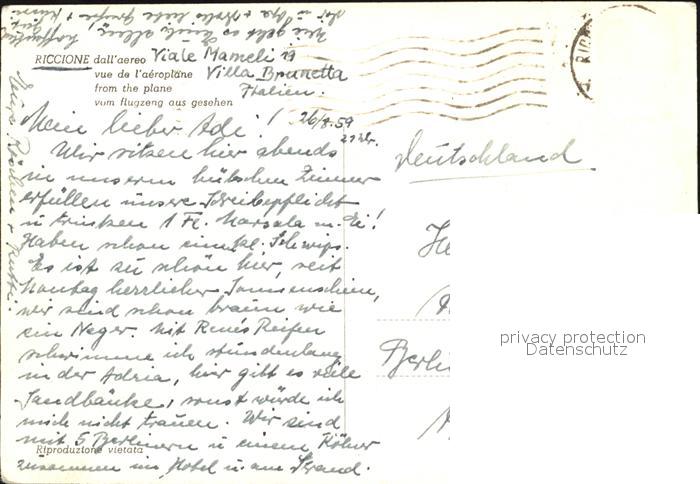 Wie geht es Euch allen? hoffentlich gut.
RICCIONE dall'aereo Viale Mameli 19
vue de l'aéroplane Villa Brunetta
from the plane Italien.
vom flugzeug aus gesehen
Mein lieber Adi! 26/8.59
21 Uhr.
Wir sitzen hier abends
in unserm hübschen Zimmer
erfüllen unsere Schreibepflicht
u trinken 1 Fl. Marsala m. Ei!
Haben schon einen kl. Schwips.
Es ist zu schön hier, seit
Montag herrlicher Sonnenschein,
wir sind schon braun wie
ein Neger. Mit Renés Reifen
schwimme ich stundenlang
in der Adria, hier gibt es viele
Sandbänke, sonst würde ich
mich nicht trauen. Wir sind
mit 5 Berlinern u einem Kölner
zusammen im Hotel u am Strand.
Riproduzione vietata
Deutschland
Berli
privacy protection
Datenschutz